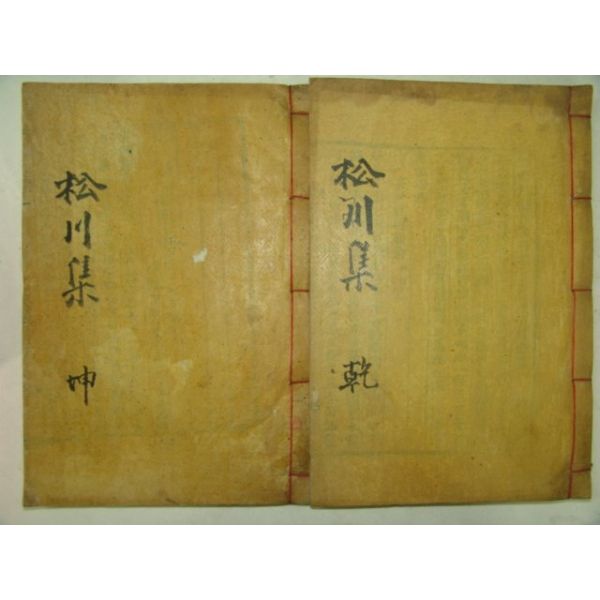 松川集 乾
松川集 坤